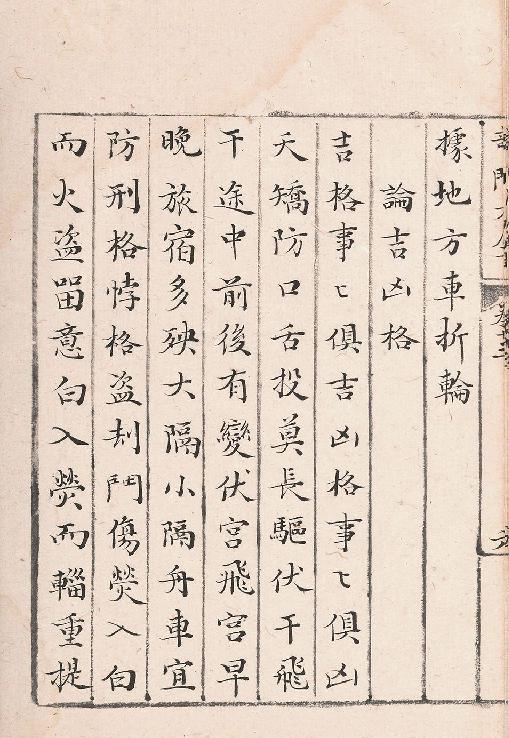 據地方車折輪
論吉凶格
吉格事〻俱吉凶格事〻俱凶
天矯防口舌投莫長驅伏干飛
干途中前後有變伏宮飛宮早
晚旅宿多殃大隔小隔舟車宜
防刑格悖格盜刦鬥傷熒入白
而火盜畱意白入熒而輜重提